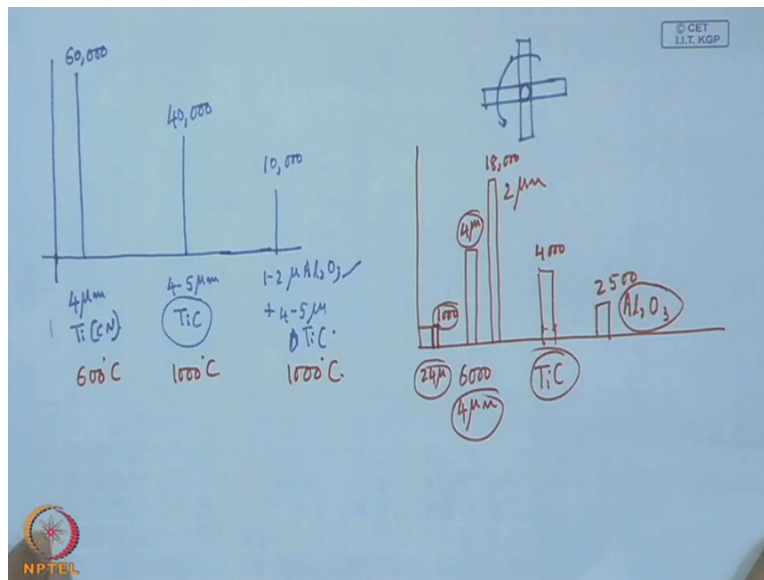 © CET
I.I.T. KGP
60,000
40,000
10,000
4 μm
Ti(CN)
600°C
4-5 μm
TiC
1000°C
1-2 μ Al2O3 ✓
+ 4-5 μ
TiC.
1000°C.
18,000
2 μm
4μ
1000
4000
2500
Al2O3
24μ
6000
4 μm
TiC
NPTEL